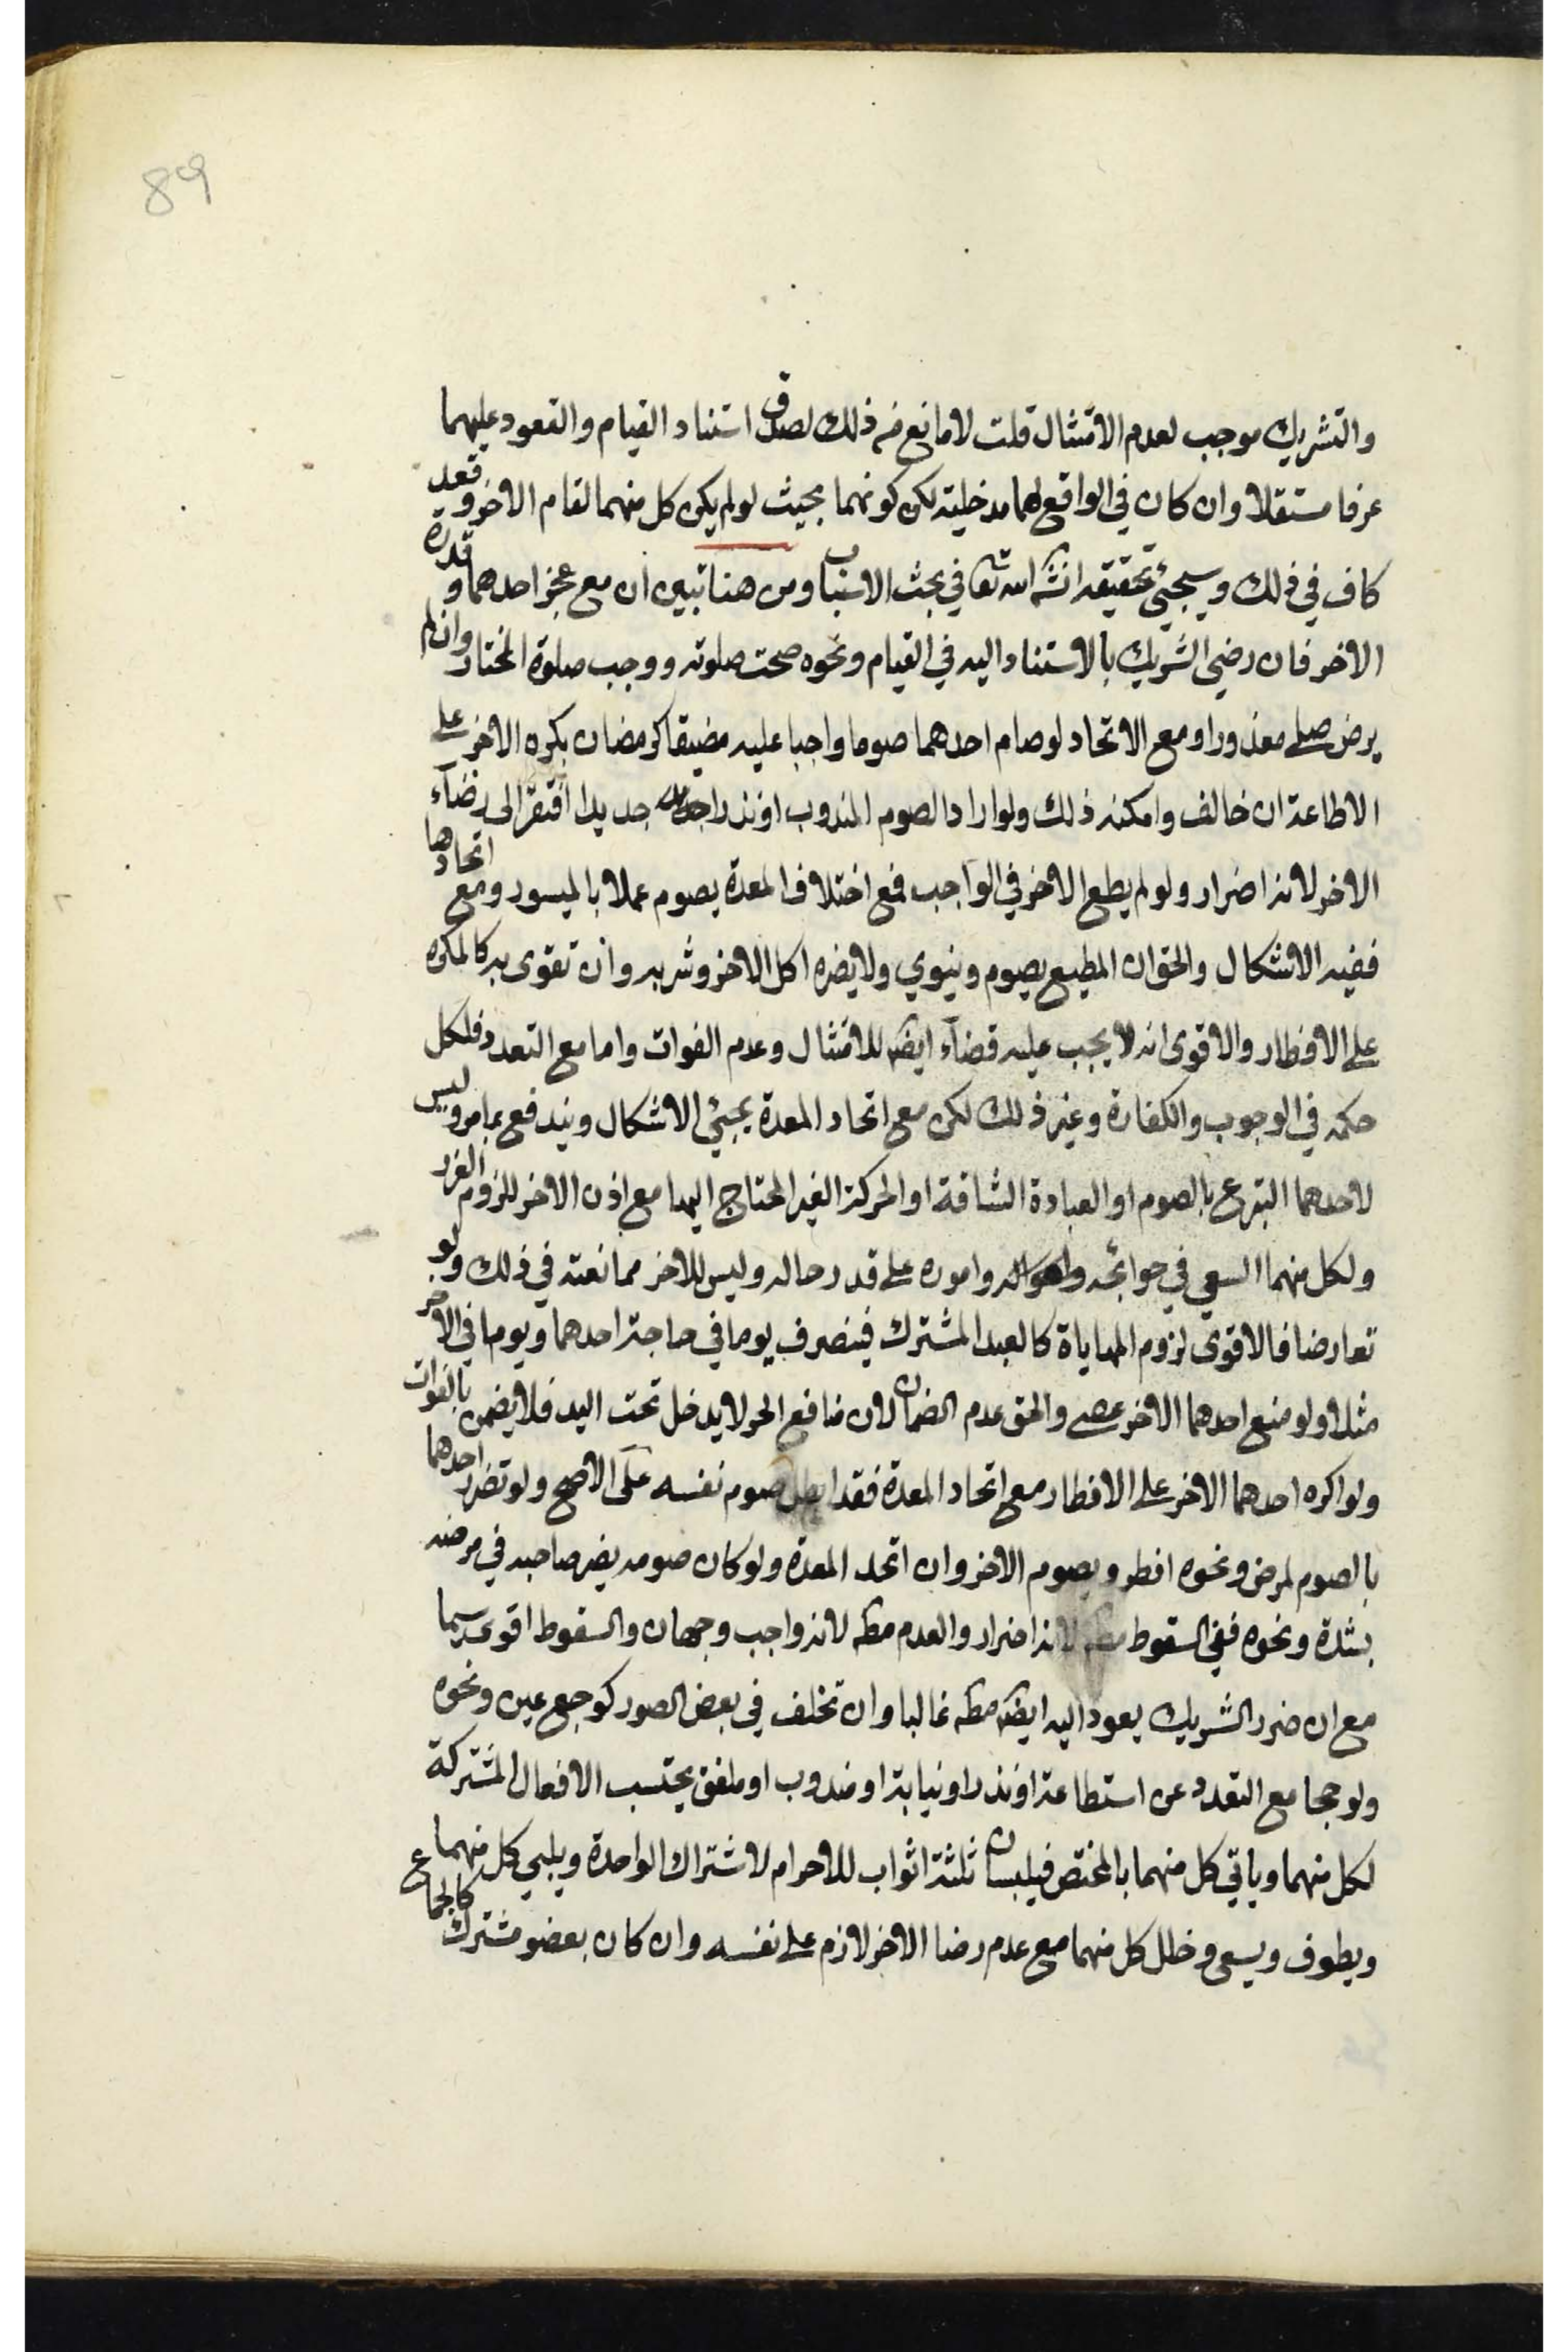 89
والتشريك موجب لعدم الامتثال قلت لا مانع من ذلك لصدق استناد القيام والقعود عليهما
عرفا مستقلا وان كان في الواقع لهما مدخلية لكن كونهما بحيث لو لم يكن كل منهما لقام الاخر وقعد
كاف في ذلك وسيجئ تحقيقه انش الله تعا في بحث الاسباب ومن هنا تبين ان مع عجز احدهما وقدرة
الاخر فان رضي الشريك بالاستناد اليه في القيام ونحوه صحت صلوته ووجب صلوة المختار وان لم
يرض صلى معذورا ومع الاتحاد لو صام احدهما صوما واجبا عليه مضيقا كرمضان يكره الاخر على
الاطاعة ان خالف وامكنه ذلك ولو اراد الصوم المندوب او نذرا جديدا افتقر الى رضاء
الاخر لانه اضرار ولو لم يطع الاخر في الواجب فمع اختلاف المعدة يصوم عملا بالميسور ومع اتحادها
ففيه الاشكال والحق ان المطيع يصوم وينوي ولا يضره اكل الاخر وشربه وان تقوى به كالمكره
على الافطار والاقوى انه لا يجب عليه قضاء ايض للامتثال وعدم الفوات واما مع التعدد فلكل
حكمه في الوجوب والكفارة وغير ذلك لكن مع اتحاد المعدة يجئ الاشكال ويندفع بما مر وليس
لاحدهما التبرع بالصوم او العبادة الشاقة او الحركة الغير المحتاج اليها مع اذن الاخر للزوم الضرر
ولكل منهما السعي في حوائجه واحواله واموره على قدر حاله وليس للاخر ممانعته في ذلك ولو
تعارضا فالاقوى لزوم المهاياة كالعبد المشترك فينصرف يوما في حاجة احدهما ويوما في الاخر
مثلا ولو منع احدهما الاخر عصى والحق عدم الضمان لان منافع الحر لا يدخل تحت اليد فلا يضمن بالفوات
ولو اكره احدهما الاخر على الافطار مع اتحاد المعدة فقد ابطل صوم نفسه على الاصح ولو تضرر احدهما
بالصوم لمرض ونحوه افطر ويصوم الاخر وان اتحد المعدة ولو كان صومه يضر صاحبه في مرضه
بشدة ونحوه ففي السقوط مطه لانه اضرار والعدم مطه لانه واجب وجهان والسقوط اقوى سيما
مع ان ضرر الشريك يعود اليه ايضه مطه غالبا وان تخلف في بعض الصور كوجع عين ونحوه
ولو حجا مع التعدد عن استطاعة او نذر او نيابة او مندوب او ملفق يحتسب الافعال المشتركة
لكل منهما وياتي كل منهما بالمختص فيلبسان ثلثة اثواب للاحرام لاشتراك الواحدة ويلبي كل منهما
ويطوف ويسعى وخلل كل منهما مع عدم رضا الاخر لازم على نفسه وان كان بعضو مشترك كالجماع